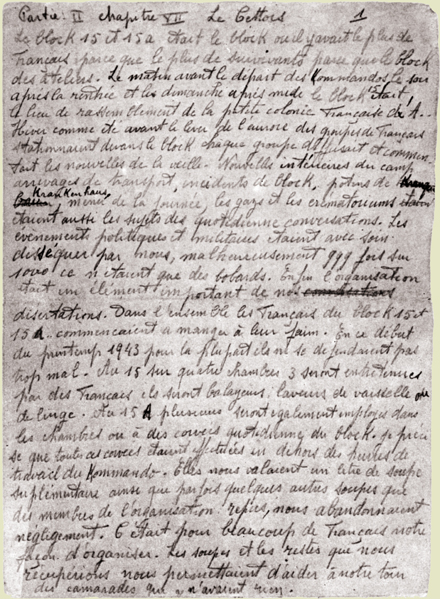 Partie: II chapitre VII Le Cettois 1
Le block 15 et 15a était le block ou il y avait le plus de
Français parce que le plus de survivants parce que le block
des ateliers. Le matin avant le départ des Kommandos, le soir
après la rentrée et les dimanche après midi le block 15 était
le lieu de rassemblement de la petite colonie Française de A.
Hiver comme été avant le levé de l'aurore des groupes de Français
stationnaient devant le block chaque groupe discutait et commen
tait les nouvelles de la veille. Nouvelles intérieures du camp
arrivages de transport, incidents de block, potins de
Kranken haus, menu de la journée, les gazs et les crématoriums
étaient aussi les sujets des quotidienne conversations. Les
évènements politiques et militaires étaient avec soin
disséquer par nous, malheureusement 999 fois sur
1000 ce n'étaient que des bobards. Enfin l'organisation
était un élément important de nos
disertations. Dans l'ensemble les Français du block 15 et
15 A commencaient a manger à leur faim. En ce début
du printemps 1943 pour la plupart ils ne se défendaient pas
trop mal. Au 15 sur quatre chambres 3 seront entretenues
par des Français ils seront balayeurs, laveurs de vaisselle ou
de linge. Au 15 A plusieurs seront également employés dans
les chambres ou à des corvées quotidienne du block. Je préci
se que toutes ces corvées étaient effectuées en dehors des heures de
travail du Kommando. Elles nous valaient un litre de soupe
suplémentaire ainsi que parfois quelques autres soupes que
des membres de l'organisation repus, nous abandonnaient
négligement. C'était pour beaucoup de Français notre
façon d'organiser. Les soupes et les restes que nous
récupérions nous permettaient d'aider à notre tour
des camarades qui n'avaient rien.